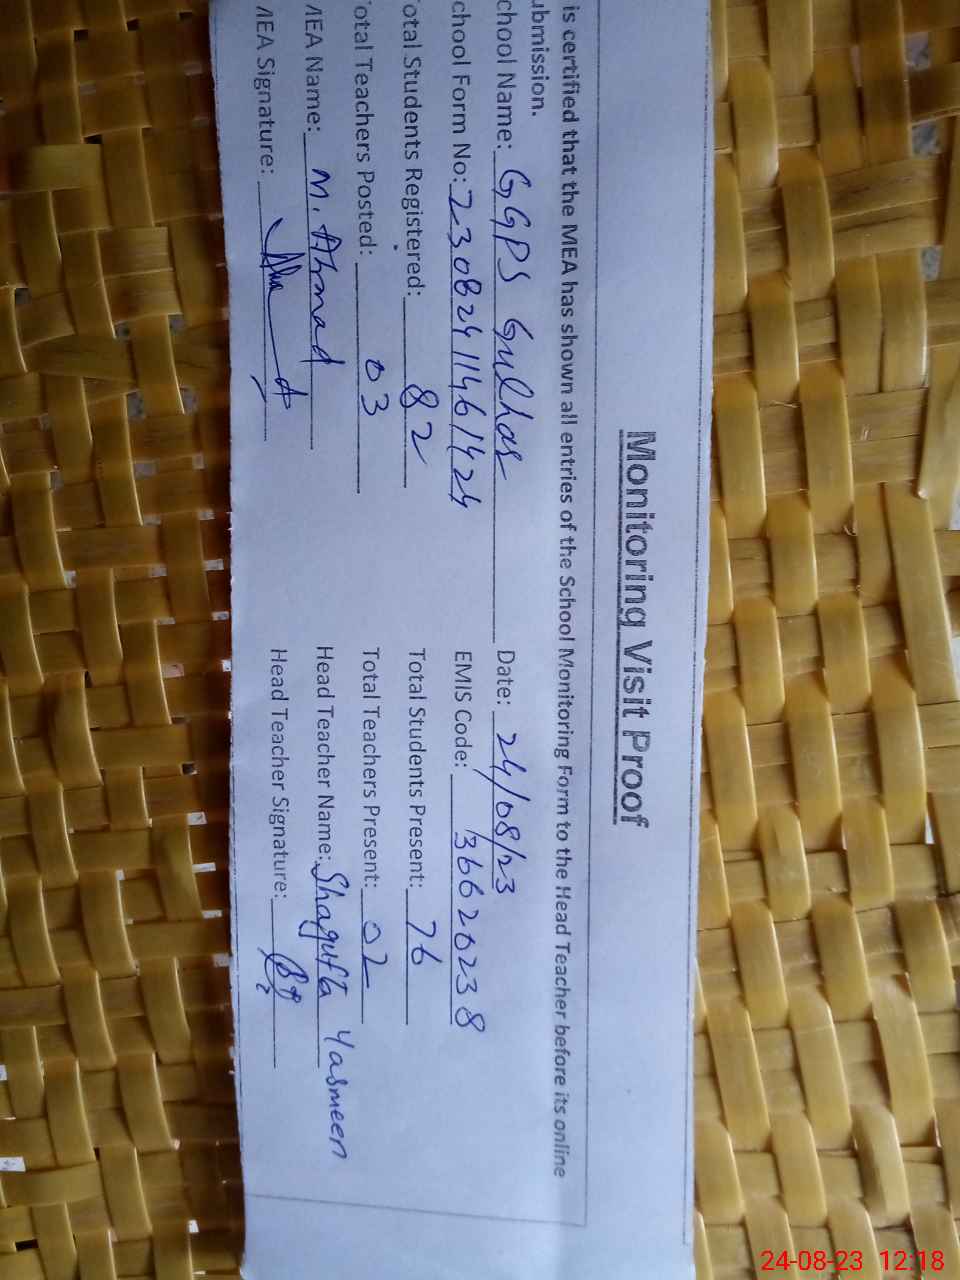 Monitoring Visit Proof
is certified that the MEA has shown all entries of the School Monitoring Form to the Head Teacher before its online
ubmission.
chool Name: GGPS Gulhar Date: 24/08/23
chool Form No: 23082411461424 EMIS Code: 36620238
otal Students Registered: 82 Total Students Present: 76
otal Teachers Posted: 03 Total Teachers Present: 02
MEA Name: M. Ahmad Head Teacher Name: Shagufta Yasmeen
MEA Signature: Head Teacher Signature:
24-08-23 12:18